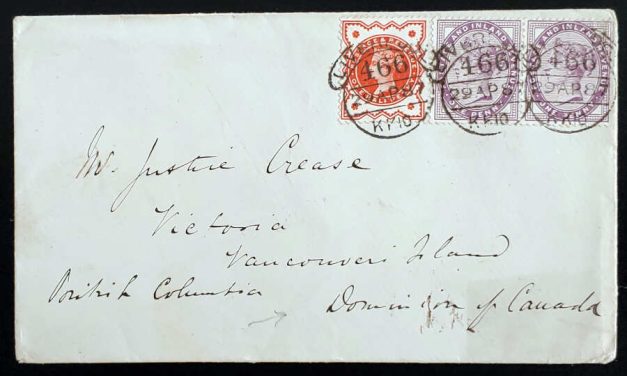 466 466 466
29 AP 8
Mr. Justice Crease
Victoria
Vancouver's Island
British Columbia
Dominion of Canada